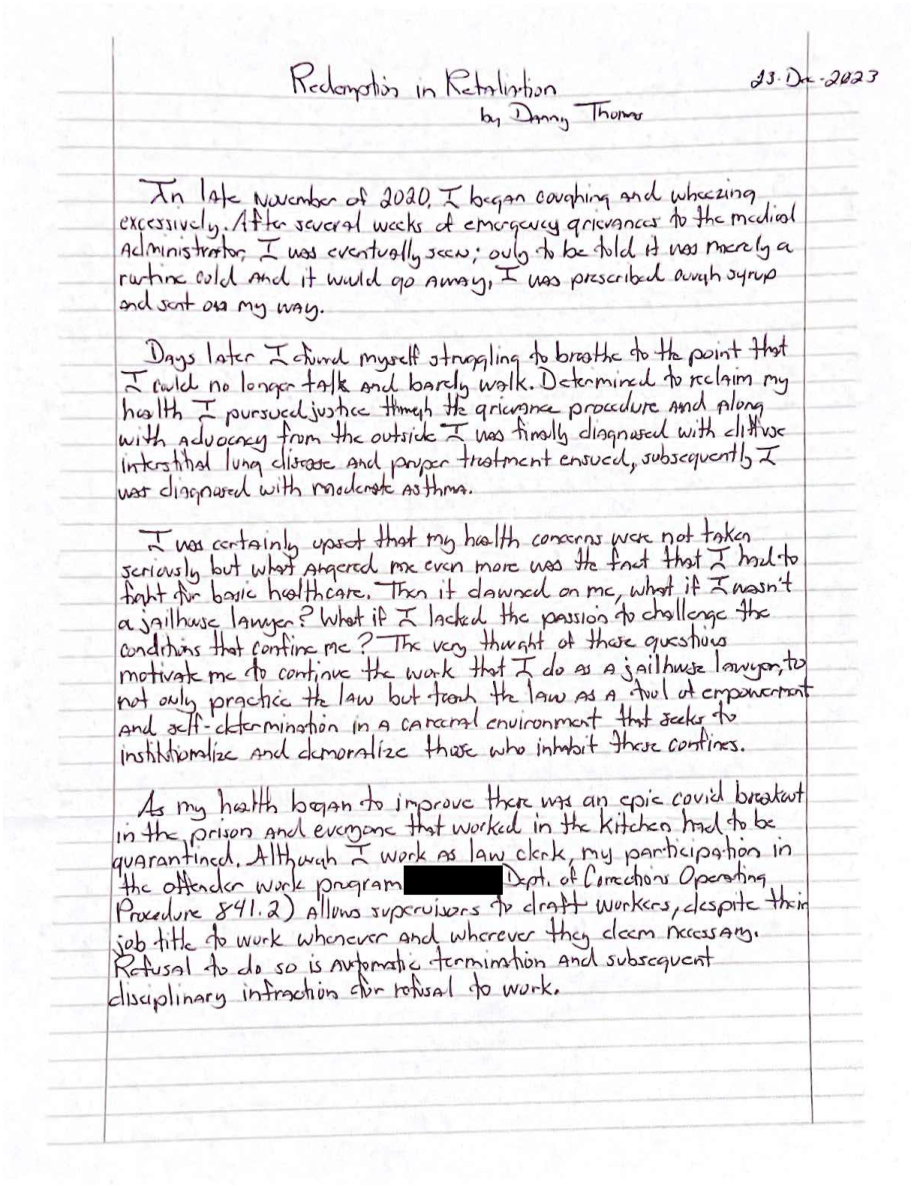 Redemption in Retaliation
23-Dec-2023
by Danny Thomas
In late November of 2020, I began coughing and wheezing
excessively. After several weeks of emergency grievances to the medical
Administrator, I was eventually seen; only to be told it was merely a
routine cold and it would go away, I was prescribed cough syrup
and sent on my way.
Days later I found myself struggling to breathe to the point that
I could no longer talk and barely walk. Determined to reclaim my
health I pursued justice through the grievance procedure and along
with advocacy from the outside I was finally diagnosed with diffuse
interstitial lung disease and proper treatment ensued, subsequently I
was diagnosed with moderate asthma.
I was certainly upset that my health concerns were not taken
seriously but what angered me even more was the fact that I had to
fight for basic healthcare. Then it dawned on me, what if I wasn't
a jailhouse lawyer? What if I lacked the passion to challenge the
conditions that confine me? The very thought of those questions
motivate me to continue the work that I do as a jailhouse lawyer, to
not only practice the law but teach the law as a tool of empowerment
and self-determination in a carceral environment that seeks to
institutionalize and demoralize those who inhabit these confines.
As my health began to improve there was an epic covid breakout
in the prison and everyone that worked in the kitchen had to be
quarantined. Although I work as law clerk, my participation in
the offender work program Dept. of Corrections Operating
Procedure 841.2) allows supervisors to draft workers, despite their
job title to work whenever and wherever they deem necessary.
Refusal to do so is automatic termination and subsequent
disciplinary infraction for refusal to work.